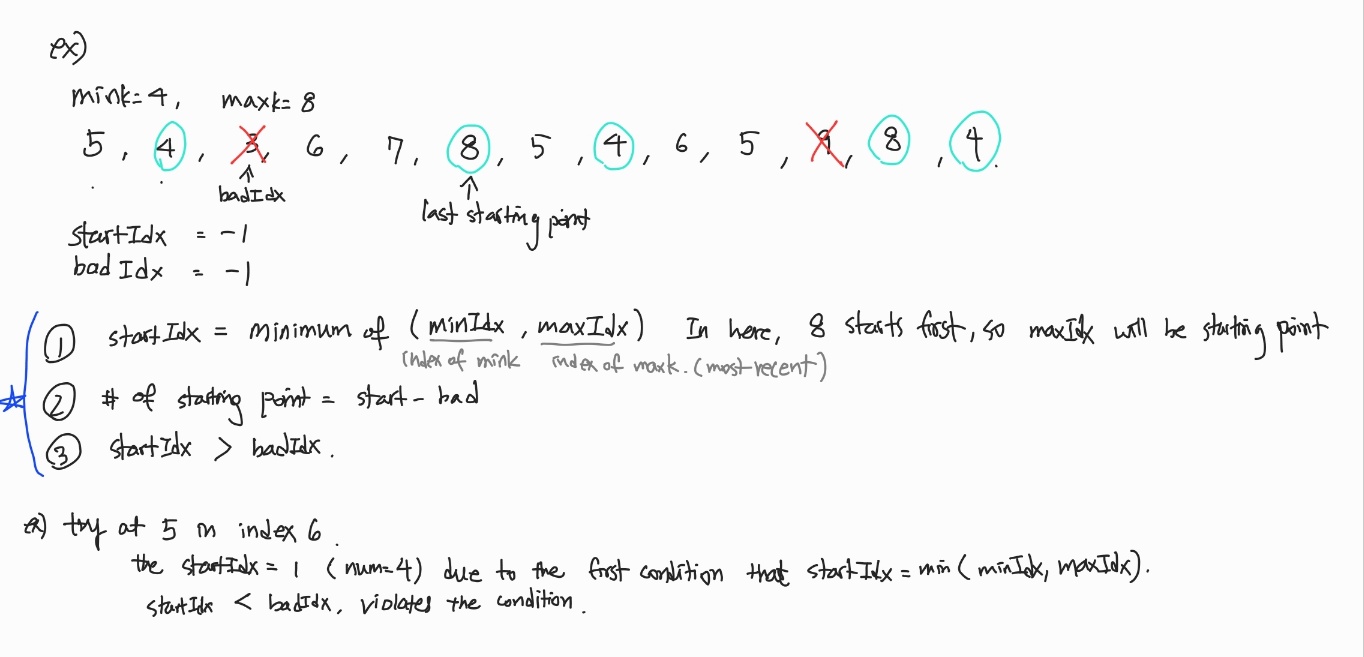 ex)
mink=4, maxk=8
5, 4, 3, 6, 7, 8, 5, 4, 6, 5, 9, 8, 4.
badIdx
last starting point
startIdx = -1
badIdx = -1
① startIdx = minimum of (minIdx, maxIdx) In here, 8 starts first, so maxIdx will be starting point
index of mink index of maxk. (most-recent)
② # of starting point = start - bad
③ startIdx > badIdx.
ex) try at 5 in index 6.
the startIdx = 1 (num=4) due to the first condition that startIdx = min(minIdx, maxIdx).
startIdx < badIdx, violates the condition.